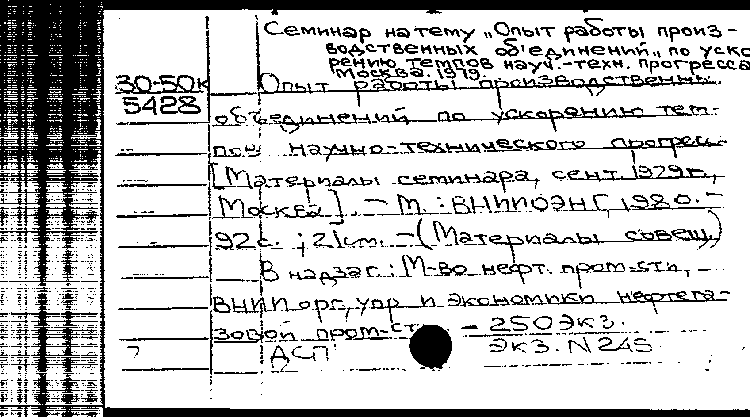 Семинар на тему „Опыт работы произ-
водственных об'единений„ по уско
рению темпов науч.-техн. прогресса
Москва. 1979.
30-50к Опыт работы производственны.
5428 объединений по ускорению тем-
пов научно-технического прогресс
[Материалы семинара, сент. 1979 г.,
Москва]. - М. : ВНИИОЭНГ, 1980. -
92 с. ; 21 см. - (Материалы совещ.)
В надзаг. : М-во нефт. пром-сти, -
ВНИИ орг., упр. и экономики нефтега-
зовой пром-сти - 250 экз.
ДСП Экз. N 245